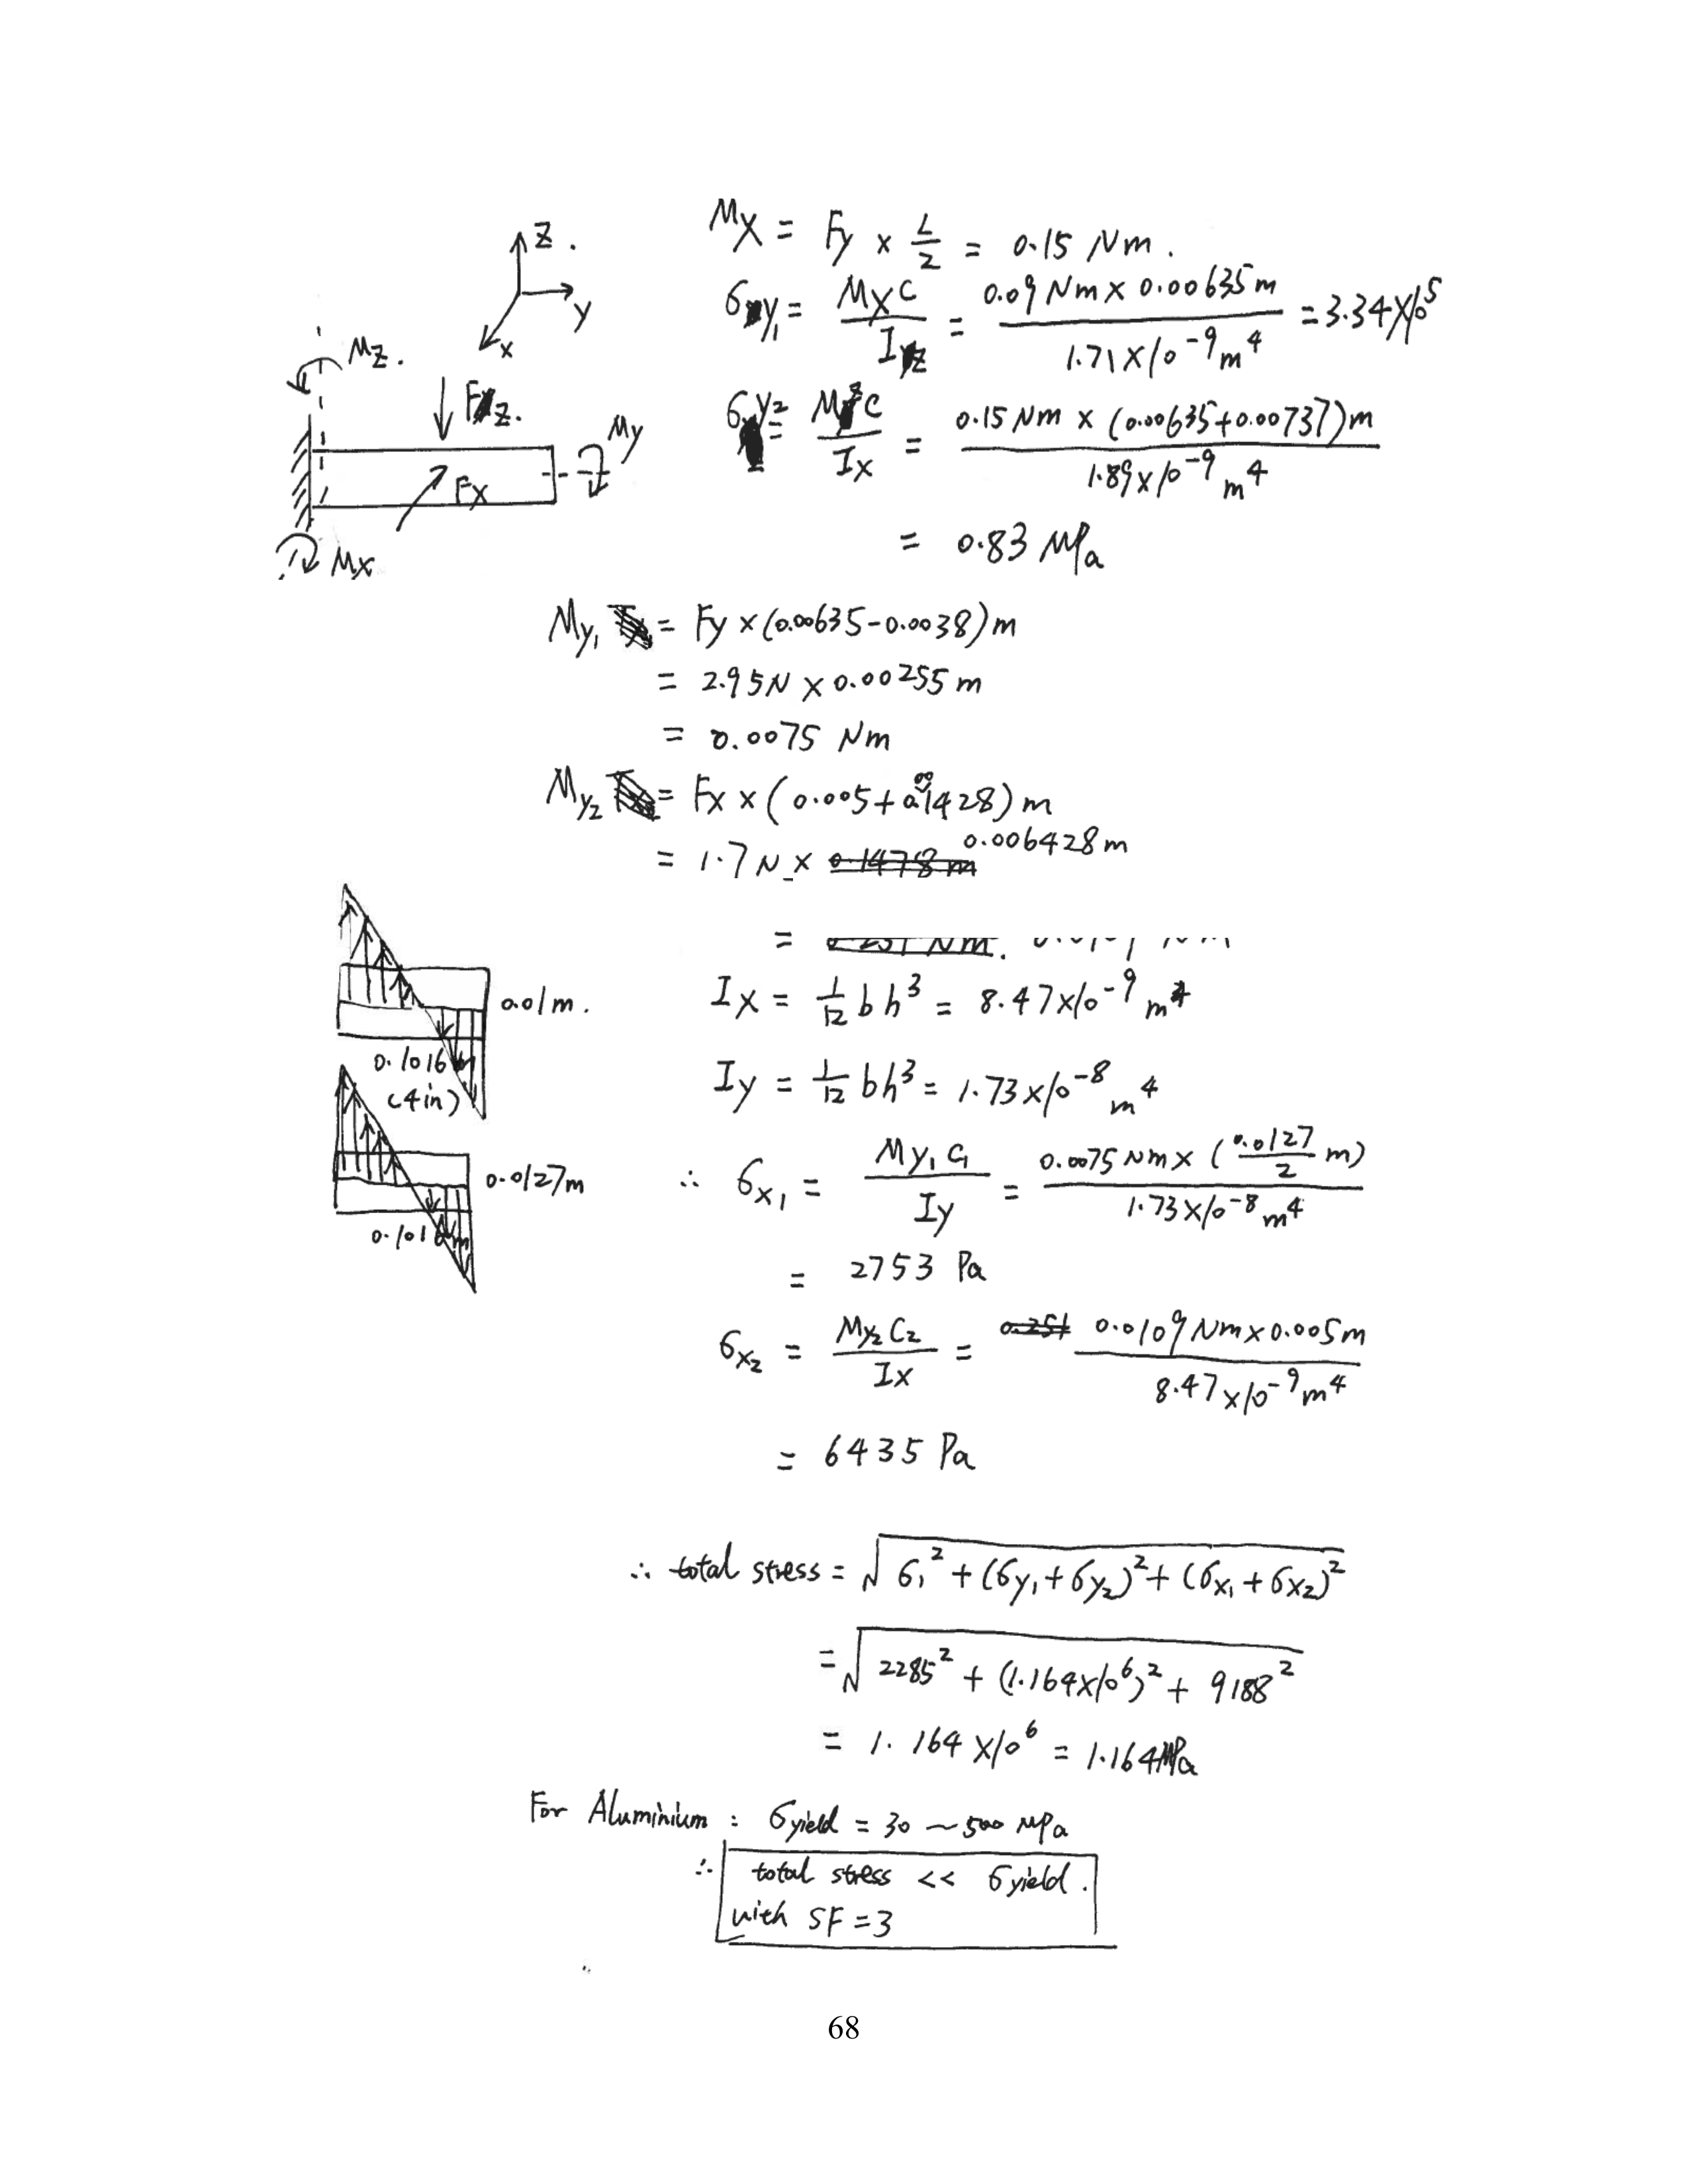 Mx = Fy × L/2 = 0.15 Nm.
σy₁ = Mxc/Iz = 0.09 Nm × 0.00635m / 1.71×10⁻⁹m⁴ = 3.34×10⁵
σy₂ = Mzc/Ix = 0.15 Nm × (0.00635+0.00737)m / 1.89×10⁻⁹m⁴
= 0.83 MPa
Z.
y
x
Mz.
Fz.
My
Fx
Mx
My₁ = Fy × (0.00635-0.0038)m
= 2.95N × 0.00255m
= 0.0075 Nm
My₂ = Fx × (0.005+0.001428)m
= 1.7N × 0.1478m 0.006428m
=
Ix = 1/12 bh³ = 8.47×10⁻⁹ m⁴
Iy = 1/12 bh³ = 1.73×10⁻⁸ m⁴
0.01m.
0.1016m
(4in)
0.0127m
0.1016m
∴ σx₁ = My₁C₁/Iy = 0.0075 Nm × (0.0127/2 m) / 1.73×10⁻⁸m⁴
= 2753 Pa
σx₂ = My₂C₂/Ix = 0.251 0.0109Nm×0.005m / 8.47×10⁻⁹m⁴
= 6435 Pa
∴ total stress = √(σ₁² + (σy₁+σy₂)² + (σx₁+σx₂)²)
= √(2285² + (1.164×10⁶)² + 9188²)
= 1.164×10⁶ = 1.164MPa
For Aluminium : σyield = 30 ~ 500 MPa
∴ total stress << σyield.
with SF = 3
68